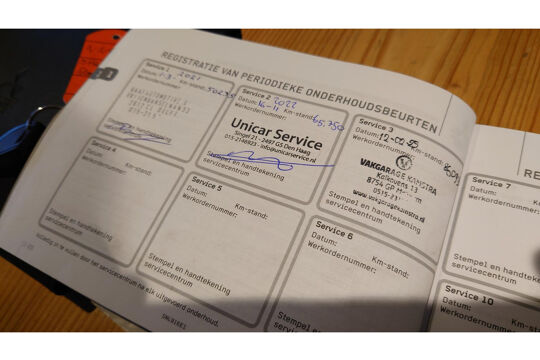 REGISTRATIE VAN PERIODIEKE ONDERHOUDSBEURTEN
Service 1
Datum: 1-3- 2021 Km-stand: 50235
Werkordernummer:
Stempel en handtekening
servicecentrum
Service 2
Datum: 16-11 2022 Km-stand: 65,750
Werkordernummer:
Unicar Service
Singel 21 - 2497 GS Den Haag
Stempel en handtekening
servicecentrum
Service 3
Datum: Km-stand:
Werkordernummer:
VAKGARAGE KAMSTRA
Kalkovens 13
8754 GP
www.vakgaragekamstra.nl
Stempel en handtekening
servicecentrum
Service 4
Datum: Km-stand:
Werkordernummer:
Stempel en handtekening
servicecentrum
Service 5
Datum: Km-stand:
Werkordernummer:
Stempel en handtekening
servicecentrum
Service 6
Datum: Km-stand:
Werkordernummer:
Volledig in te vullen door het servicecentrum na elk uitgevoerd onderhoud.
RE
Service 7
Datum:
Werkordernummer:
Stempel en
servicecentrum
Service 10
Datum:
Werkordernummer: